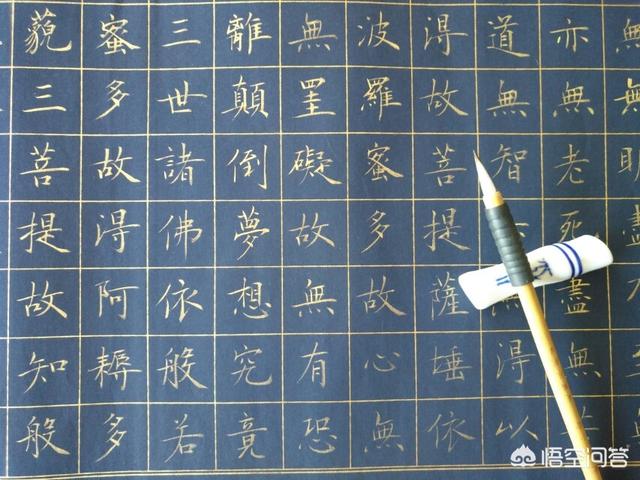 無無盡至
亦無老死盡無
道無智得以
得故菩提薩埵依
波羅蜜多故心無
無罣礙故無有恐
離顛倒夢想究竟
三世諸佛依般若
蜜多故得阿耨多
藐三菩提故知般
悟空问答